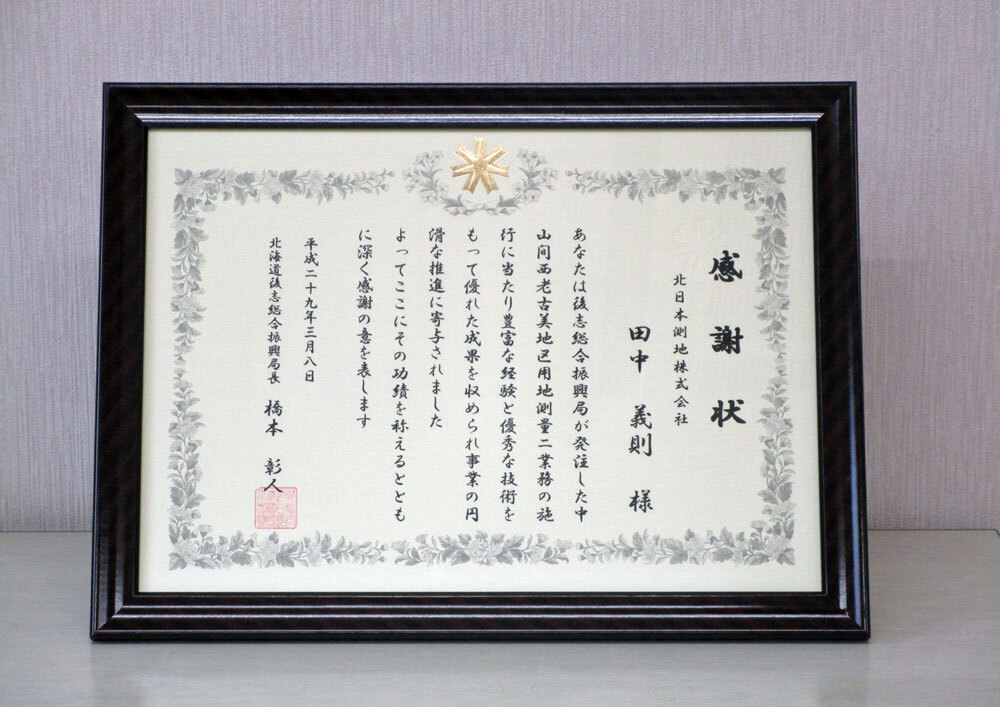 感謝状
北日本測地株式会社
田中 義則 様
あなたは後志総合振興局が発注した中
山間西老古美地区用地測量二業務の施
行に当たり豊富な経験と優秀な技術を
もって優れた成果を収められ事業の円
滑な推進に寄与されました
よってここにその功績を称えるととも
に深く感謝の意を表します
平成二十九年三月八日
北海道後志総合振興局長 橋本 彰人